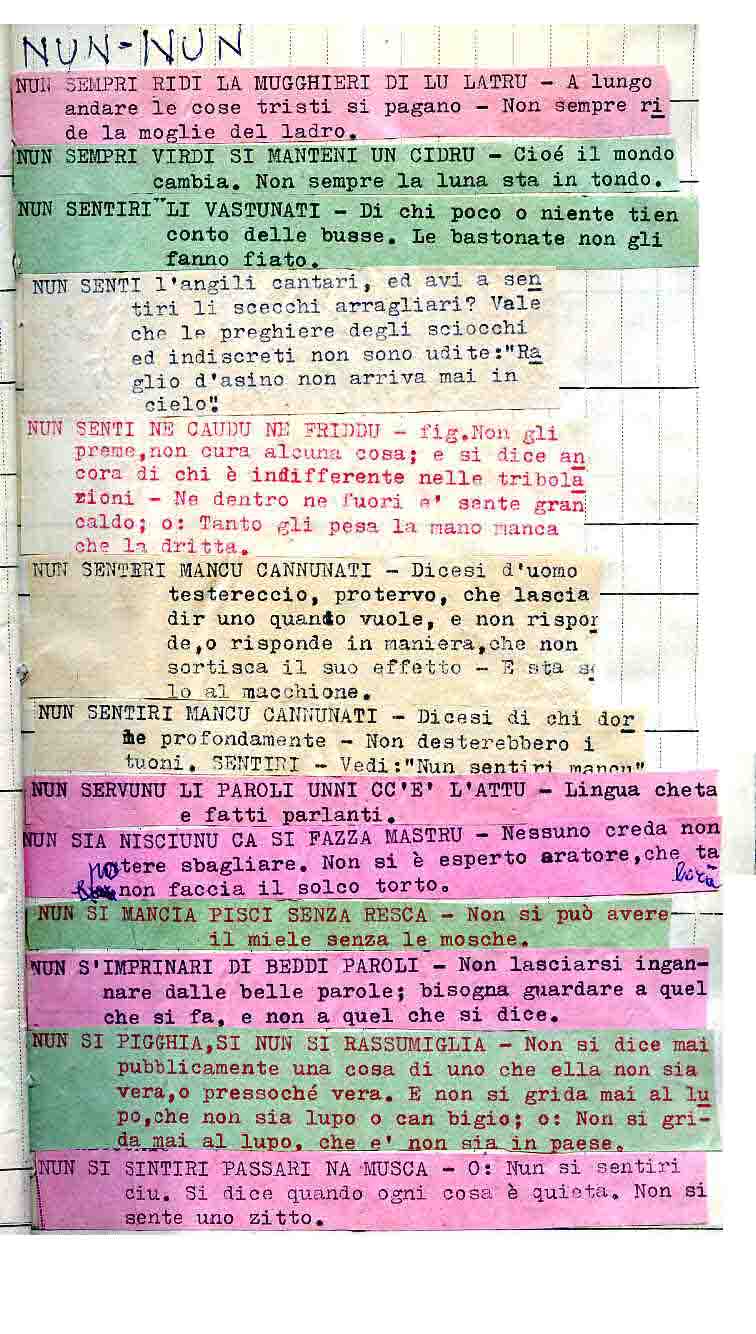 NUN-NUN
NUN SEMPRI RIDI LA MUGGHIERI DI LU LATRU - A lungo
andare le cose tristi si pagano - Non sempre ri
de la moglie del ladro.
NUN SEMPRI VIRDI SI MANTENI UN CIDRU - Cioé il mondo
cambia. Non sempre la luna sta in tondo.
NUN SENTIRI LI VASTUNATI - Di chi poco o niente tien
conto delle busse. Le bastonate non gli
fanno fiato.
NUN SENTI l'angili cantari, ed avi a sen
tiri li scecchi arragliari? Vale
che le preghiere degli sciocchi
ed indiscreti non sono udite:"Ra
glio d'asino non arriva mai in
cielo".
NUN SENTI NE CAUDU NE FRIDDU - fig.Non gli
preme,non cura alcuna cosa; e si dice an
cora di chi è indifferente nelle tribola
zioni - Ne dentro ne fuori e' sente gran
caldo; o: Tanto gli pesa la mano manca
che la dritta.
NUN SENTERI MANCU CANNUNATI - Dicesi d'uomo
testereccio, protervo, che lascia
dir uno quando vuole, e non rispon
de,o risponde in maniera,che non
sortisca il suo effetto - E sta so
lo al macchione.
NUN SENTIRI MANCU CANNUNATI - Dicesi di chi dor
me profondamente - Non desterebbero i
tuoni. SENTIRI - Vedi:"Nun sentiri mancu"
NUN SERVUNU LI PAROLI UNNI CC'E' L'ATTU - Lingua cheta
e fatti parlanti.
NUN SIA NISCIUNU CA SI FAZZA MASTRU - Nessuno creda non
potere sbagliare. Non si è esperto aratore,che ta
lora non faccia il solco torto.
NUN SI MANCIA PISCI SENZA RESCA - Non si può avere
il miele senza le mosche.
NUN S'IMPRINARI DI BEDDI PAROLI - Non lasciarsi ingan-
nare dalle belle parole; bisogna guardare a quel
che si fa, e non a quel che si dice.
NUN SI PIGGHIA,SI NUN SI RASSUMIGLIA - Non si dice mai
pubblicamente una cosa di uno che ella non sia
vera,o pressoché vera. E non si grida mai al lu
po,che non sia lupo o can bigio; o: Non si gri-
da mai al lupo, che e' non sia in paese.
NUN SI SINTIRI PASSARI NA MUSCA - O: Nun si sentiri
ciu. Si dice quando ogni cosa è quieta. Non si
sente uno zitto.